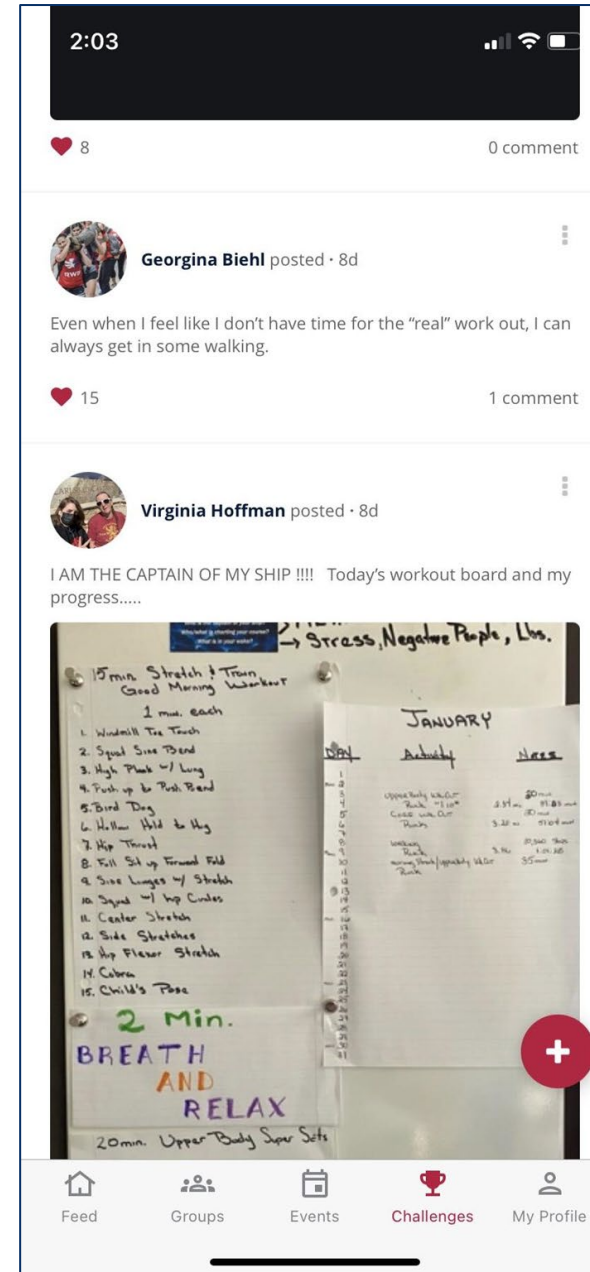 2:03
8
0 comment
RWB
Georgina Biehl posted · 8d
Even when I feel like I don’t have time for the “real” work out, I can
always get in some walking.
15
1 comment
Virginia Hoffman posted · 8d
I AM THE CAPTAIN OF MY SHIP !!!! Today’s workout board and my
progress.....
Who/what is charting your course?
What is in your wake?
→ Stress, Negative People, Lbs.
15 min Stretch & Train
Good Morning Workout
1 min. each
1. Windmill Toe Touch
2. Squat Side Bend
3. High Plank w/ Lung
4. Push up to Push Bend
5. Bird Dog
6. Hollow Hold to Hug
7. Hip Thrust
8. Full Sit up Forward Fold
9. Side Lunges w/ Stretch
10. Squat w/ hip Circles
11. Center Stretch
12. Side Stretches
13. Hip Flexor Stretch
14. Cobra
15. Child's Pose
2 Min.
BREATH
AND
RELAX
20min. Upper Body Super Sets
JANUARY
DAY Activity
1
2
3 Upper Body
4 Ruck
5 Core
6 Ruck
7
8 walking
9 Ruck
10
11 Ruck
12
13
14
15
16
17
18
19
20
21
22
23
24
25
26
27
28
29
30
31
Feed
Groups
Events
Challenges
My Profile